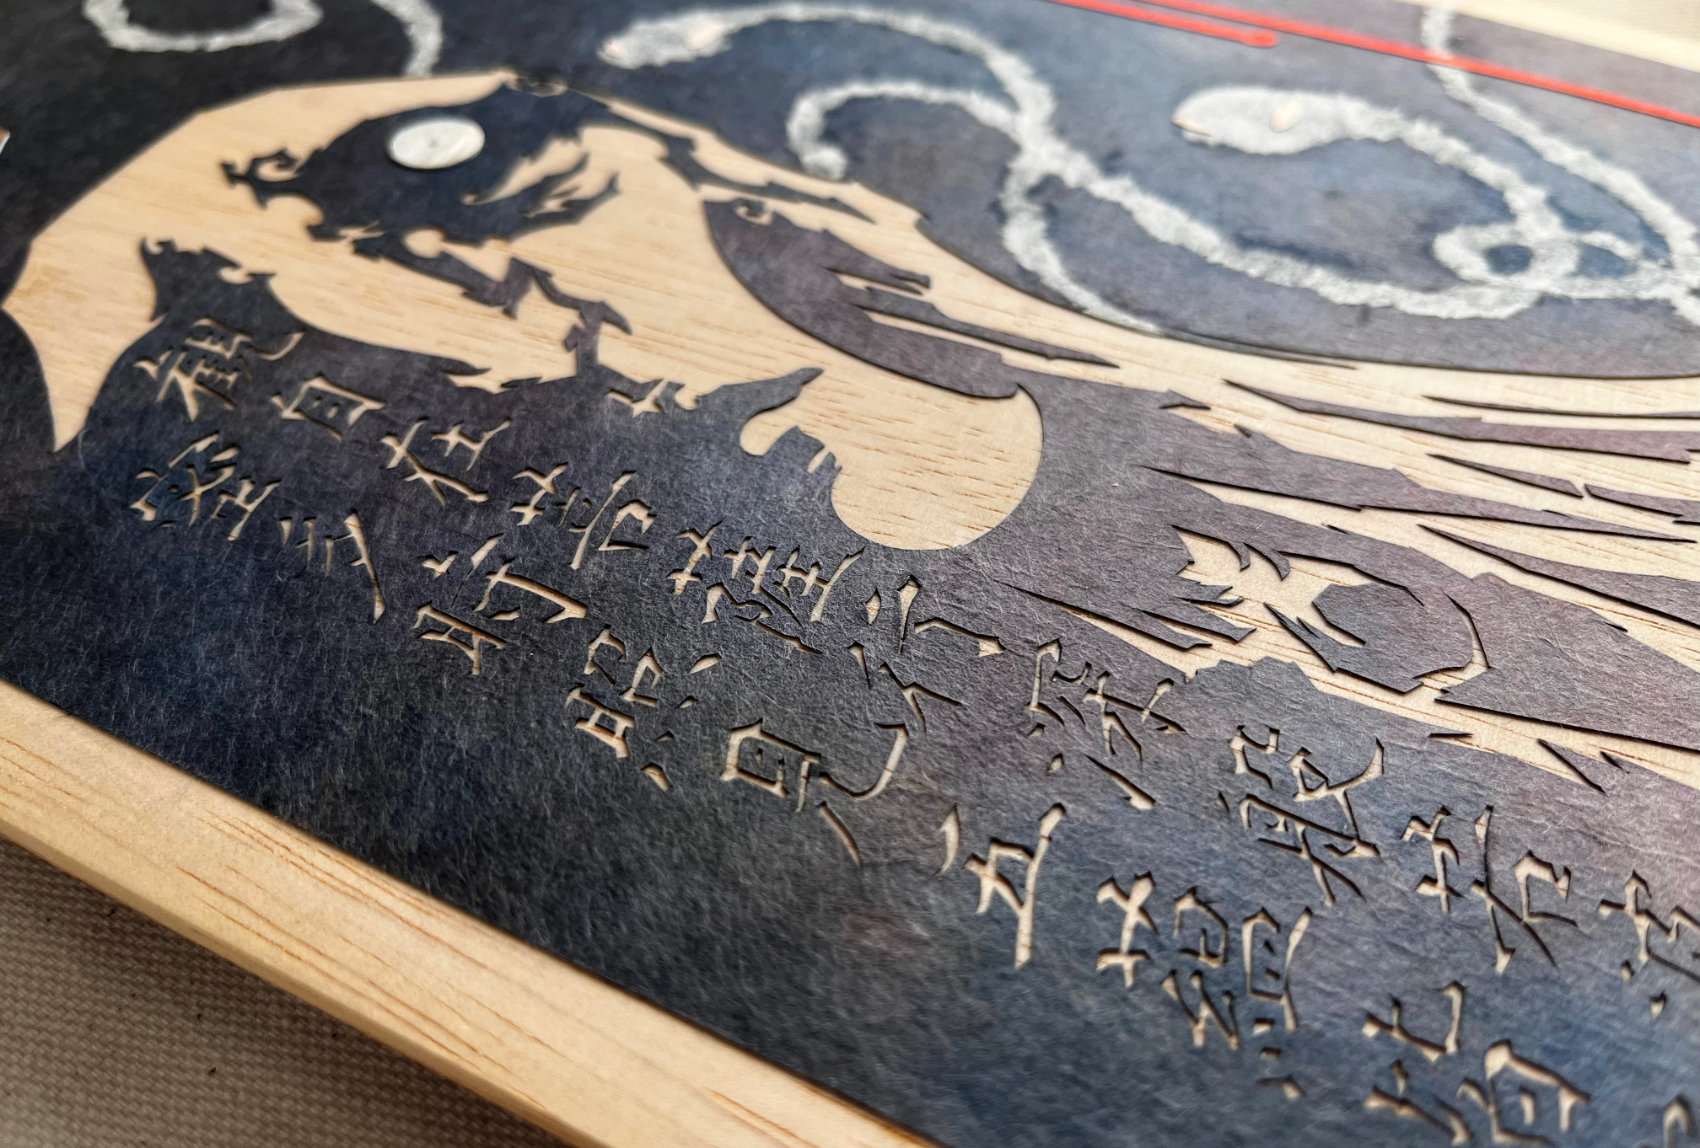 觀自在菩薩行深般若
蜜多時照見五蘊皆